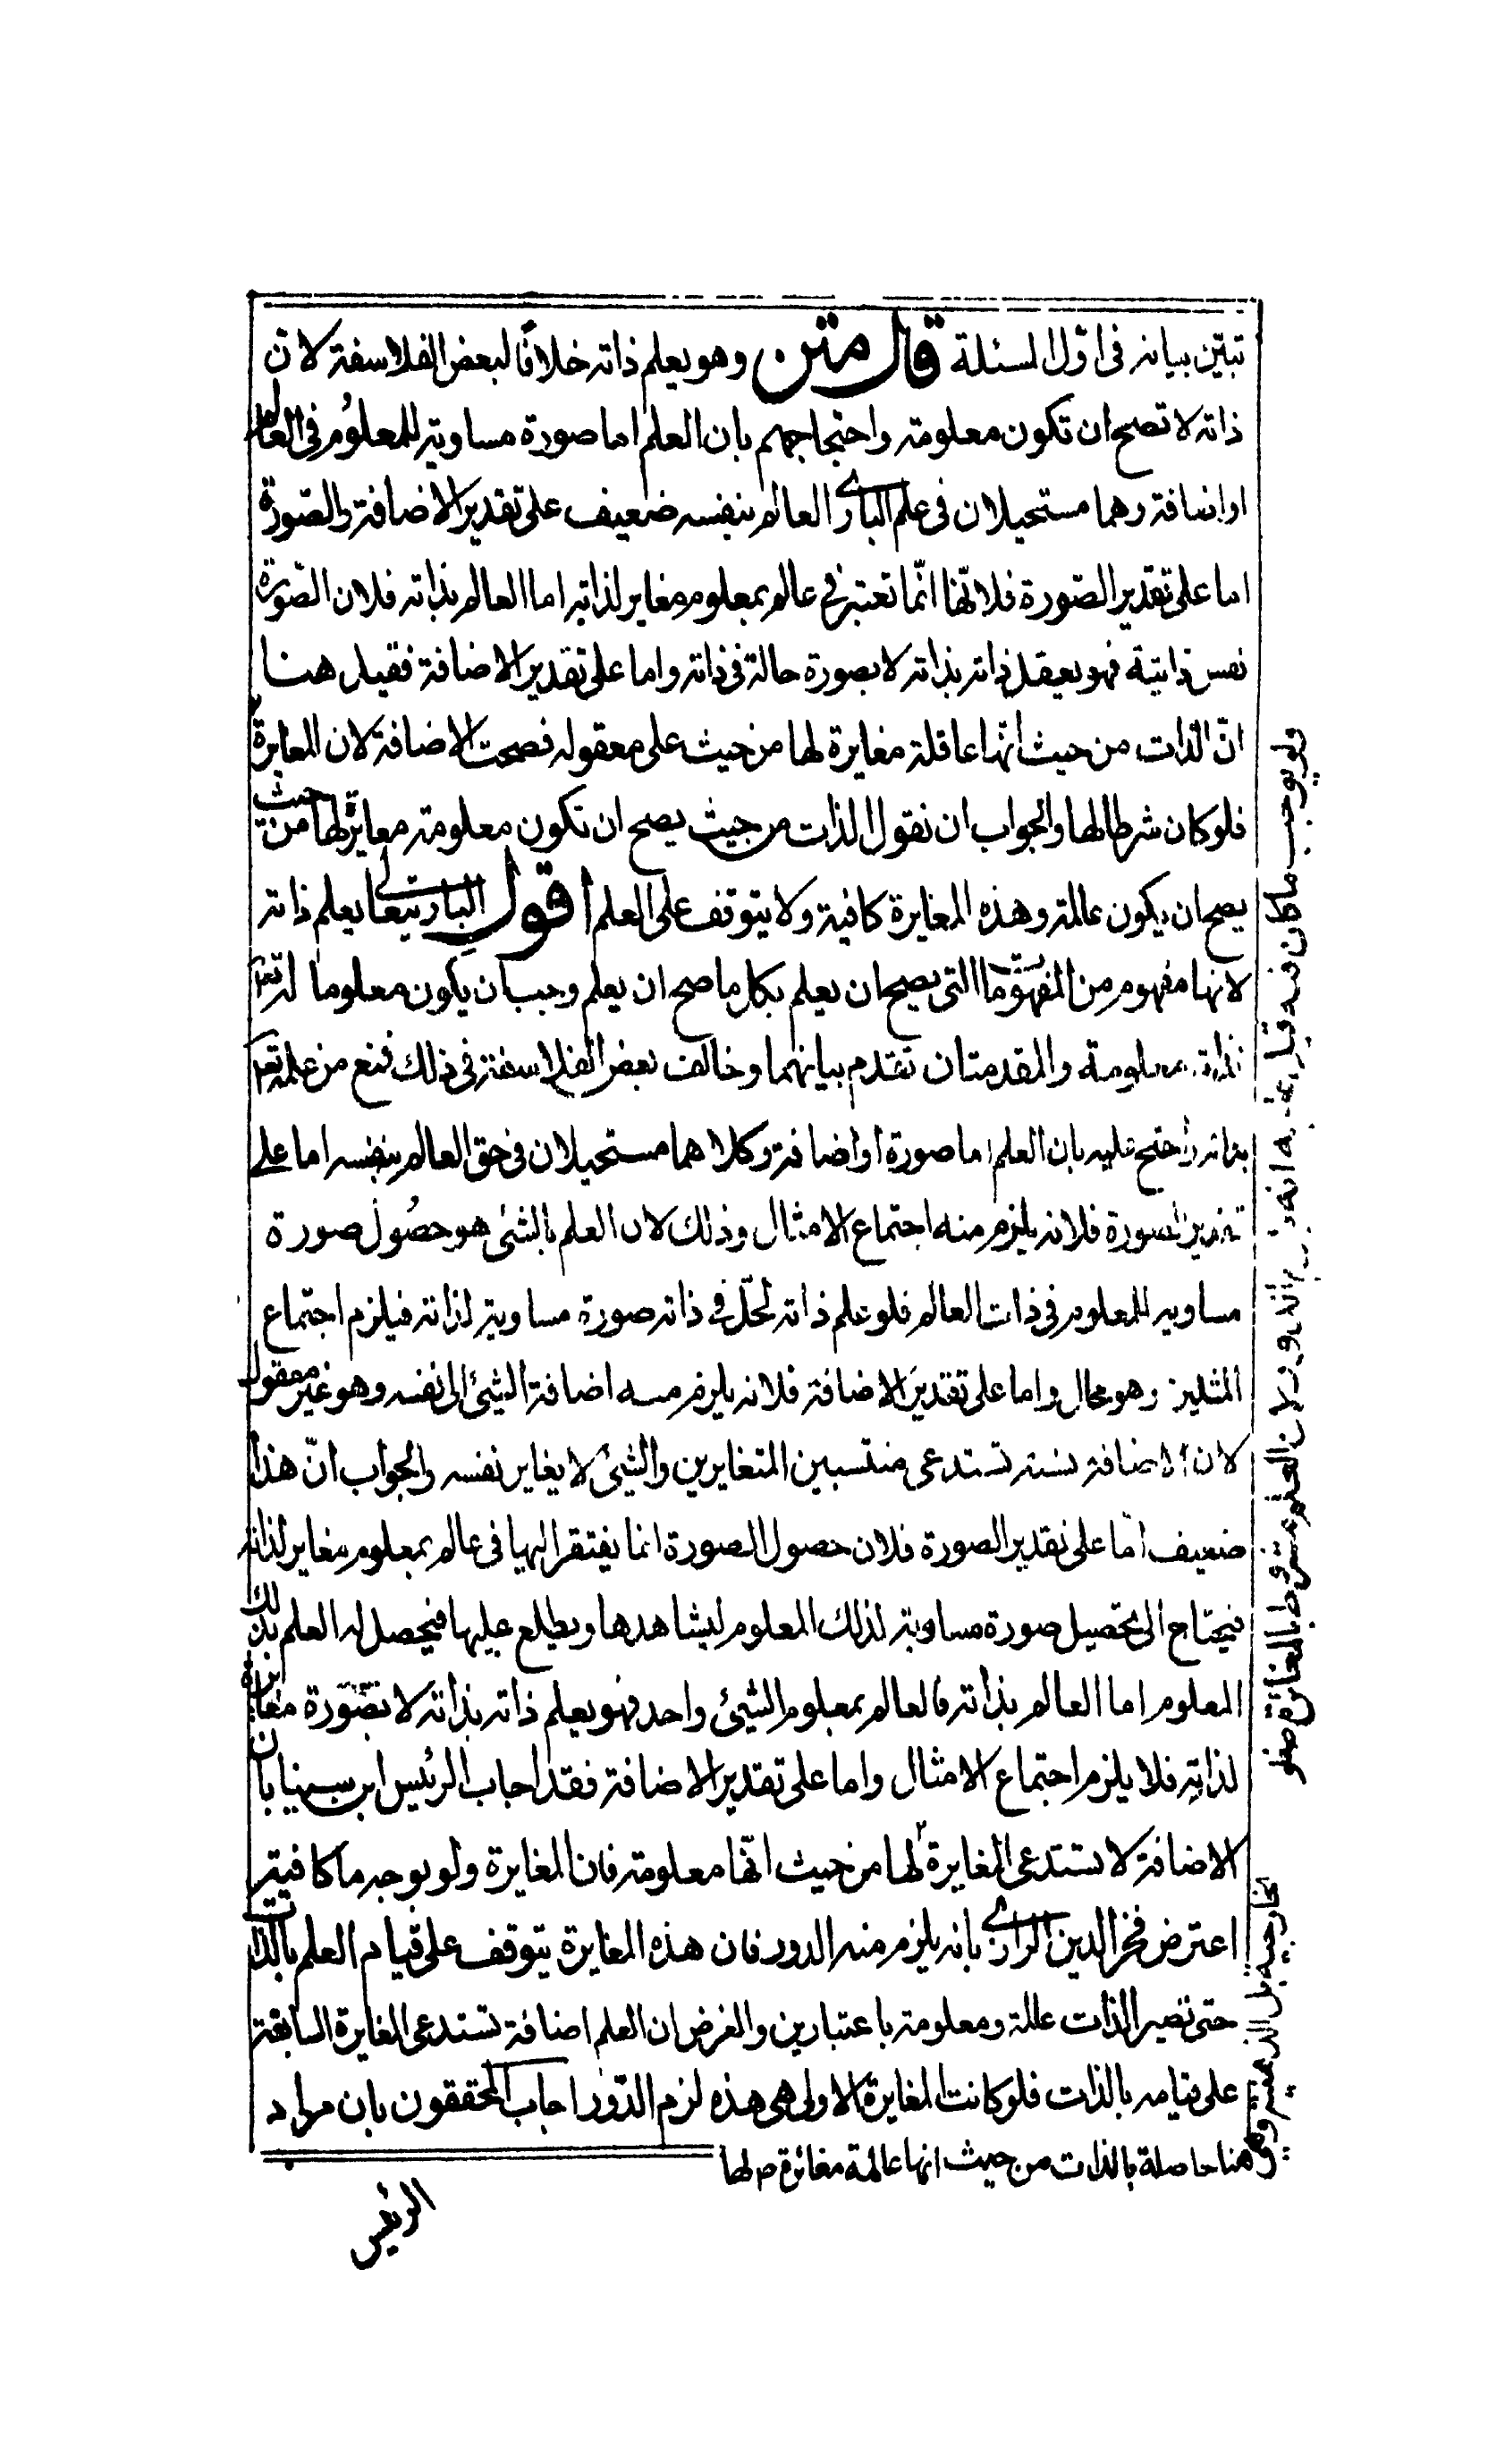 تبيّن بيانه فى اوّل المسئلة قال متن وهو يعلم ذاته خلافًا لبعض الفلاسفة لان
ذاته لا تصح ان تكون معلومة واحتجاجهم بان العلم اما صورة مساوية للمعلوم فى العالم
او اضافة وهما مستحيلان فى علم البارى العالم بنفسه ضعيف على تقدير الاضافة والصّورة
اما على تقدير الصّورة فلانّها انّما تعتبر فى عالم بمعلوم مغاير لذاته اما العالم بذاته فلان الصّورة
نفس ذاتية فهو يعقل ذاته بذاته لا بصورة حالة فى ذاته واما على تقدير الاضافة فقيل هنا
انّ الذات من حيث انّها عاقلة مغايرة لها من حيث على معقوله فصحت الاضافة لان المغايرة
فلو كان شرطا لها والجواب ان نقول الذات من حيث يصح ان تكون معلومة مغايرة لها من حيث
يصح ان يكون عالمة وهذه المغايرة كافية ولا يتوقف على العلم اقول البارى تعالى يعلم ذاته
لانها مفهوم من المفهوما التى يصح ان يعلم بكل ما صح ان يعلم وجب ان يكون معلوما له تعم
فذاته معلومة والمقدمتان تقدم بيانهما وخالف بعض الفلاسفة فى ذلك فمنع من علمه تعم
بذاته واحتج عليه بان العلم اما صورة او اضافة وكلاهما مستحيلان فى حق العالم بنفسه اما على
تقدير الصورة فلانه يلزم منه اجتماع الامثال وذلك لان العلم بالشئ هو حصُول صورة
مساويه للمعلوم فى ذات العالم فلو علم ذاته لحلّ فى ذاته صورة مساوية لذاته فيلزم اجتماع
المثلين وهو محال واما على تقدير الاضافة فلانه يلزم منه اضافة الشئ الى نفسه وهو غير معقول
لان الاضافة نسبة تستدعى منتسبين المتغايرين والشئ لا يغاير نفسه والجواب انّ هذا
ضعيف امّا على تقدير الصورة فلان حصول الصورة انما يفتقر اليها فى عالم بمعلوم مغاير لذاته
فيحتاج الى تحصيل صورة مساوية لذلك المعلوم ليشاهدها ويطلع عليها فيحصل له العلم بذلك
المعلوم اما العالم بذاته فالعالم بمعلوم الشئ واحد فهو يعلم ذاته بذاته لا بصورة مغايرة
لذاته فلا يلزم اجتماع الامثال واما على تقدير الاضافة فقد اجاب الرئيس ابن سينا بان
الاضافة لا تستدعى المغايرة لها من حيث انّها معلومة فان المغايرة ولو بوجه ما كافية
اعترض فخر الدين الرازى بانه يلزم منه الدور فان هذه المغايرة يتوقف على قيام العلم بالذات
حتى تصير الذات عالمة ومعلومة باعتبارين والغرض ان العلم اضافة تستدعى المغايرة السابقة
على قيامه بالذات فلو كانت المغايرة الاولى هى هذه لزم الدّور اجاب المحققون بان مراد
الرئيس
ولو بوجب ما كان فيه لان العلم مشروط بالمغايرة
الخارجية بل الذهنية وهى
هنا حاصلة بالذات من حيث انها عالمة مغائرة لها